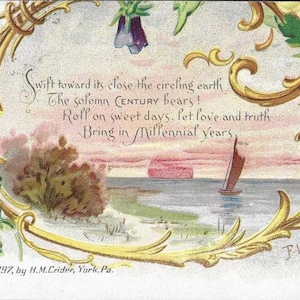 Swift toward its close the circling earth
The solemn CENTURY bears!
Roll on sweet days, let love and truth
Bring in Millennial years.
F.
97, by H.M. Crider, York, Pa.